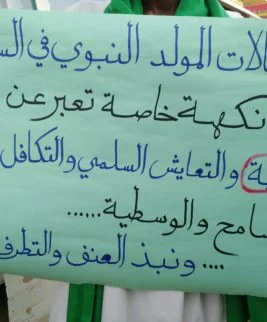 الات المولد النبوي في الس
نكهة خاصة تعبر عن
ية والتعايش السلمي والتكافل
سامح والوسطية......
.... ونبذ العنف والتطرف